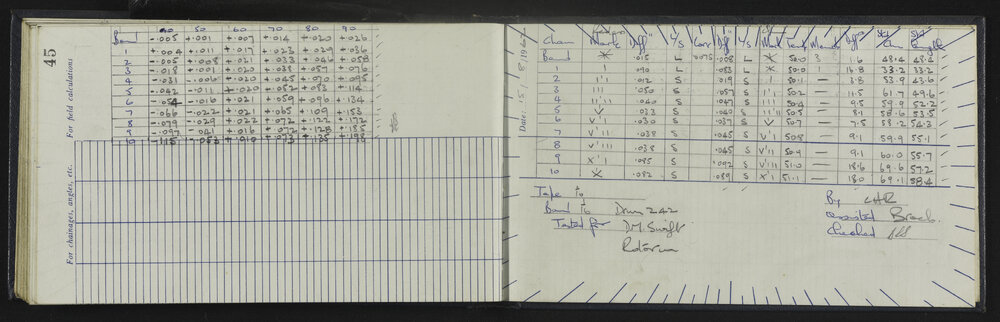 45
For field calculations
For chainages, angles, etc.
50 60 70 80 90
Band -.005 +.001 +.007 +.014 +.020 +.026
1 +.004 +.011 +.017 +.023 +.029 +.036
2 -.005 +.008 +.021 +.033 +.046 +.058
3 -.018 +.001 +.020 +.038 +.057 +.076
4 -.031 -.006 +.020 +.045 +.070 +.095
5 -.042 -.011 +.020 +.052 +.083 +.114
6 -.054 -.016 +.021 +.059 +.096 +.134
7 -.066 -.022 +.021 +.065 +.109 +.153
8 -.079 -.029 +.022 +.072 +.122 +.172
9 -.097 -.041 +.016 +.072 +.128 +.185
10 -.115 -.053 +.010 +.073 +.135 +.198
Date: 15/8/1967
Chain Mark Diff L/S Corr Diff L/S Mark Temp
Band .015 L .0075 .008 L 50.0 3 1.6 48.4 48.4
1 1 .090 L .083 L 50.0 — 16.8 33.2 33.2
2 1'1 .012 S .019 S 50.1 — 3.8 53.9 43.6
3 111 .050 S .057 S 1'1 50.2 — 11.5 61.7 49.6
4 1111 .040 S .047 S 111 50.4 — 9.5 59.9 52.2
5 V .033 S .040 S 11'11 50.5 8.1 58.6 53.5
6 V'1 .030 S .037 S V 50.7 — 7.5 58.2 54.3
7 V'111 .038 S .045 S V'1 50.8 — 9.1 59.9 55.1
8 V'111 .038 S .045 S V'11 50.9 — 9.1 60.0 55.7
9 X'1 .085 S .092 S V'111 51.0 — 18.6 69.6 57.2
10 X .082 S .089 S X'1 51.1 — 18.0 69.1 58.4
Tape to
Band to Drum 242
Tested for D.M. Swift
Rotorua
By LHR
Checked